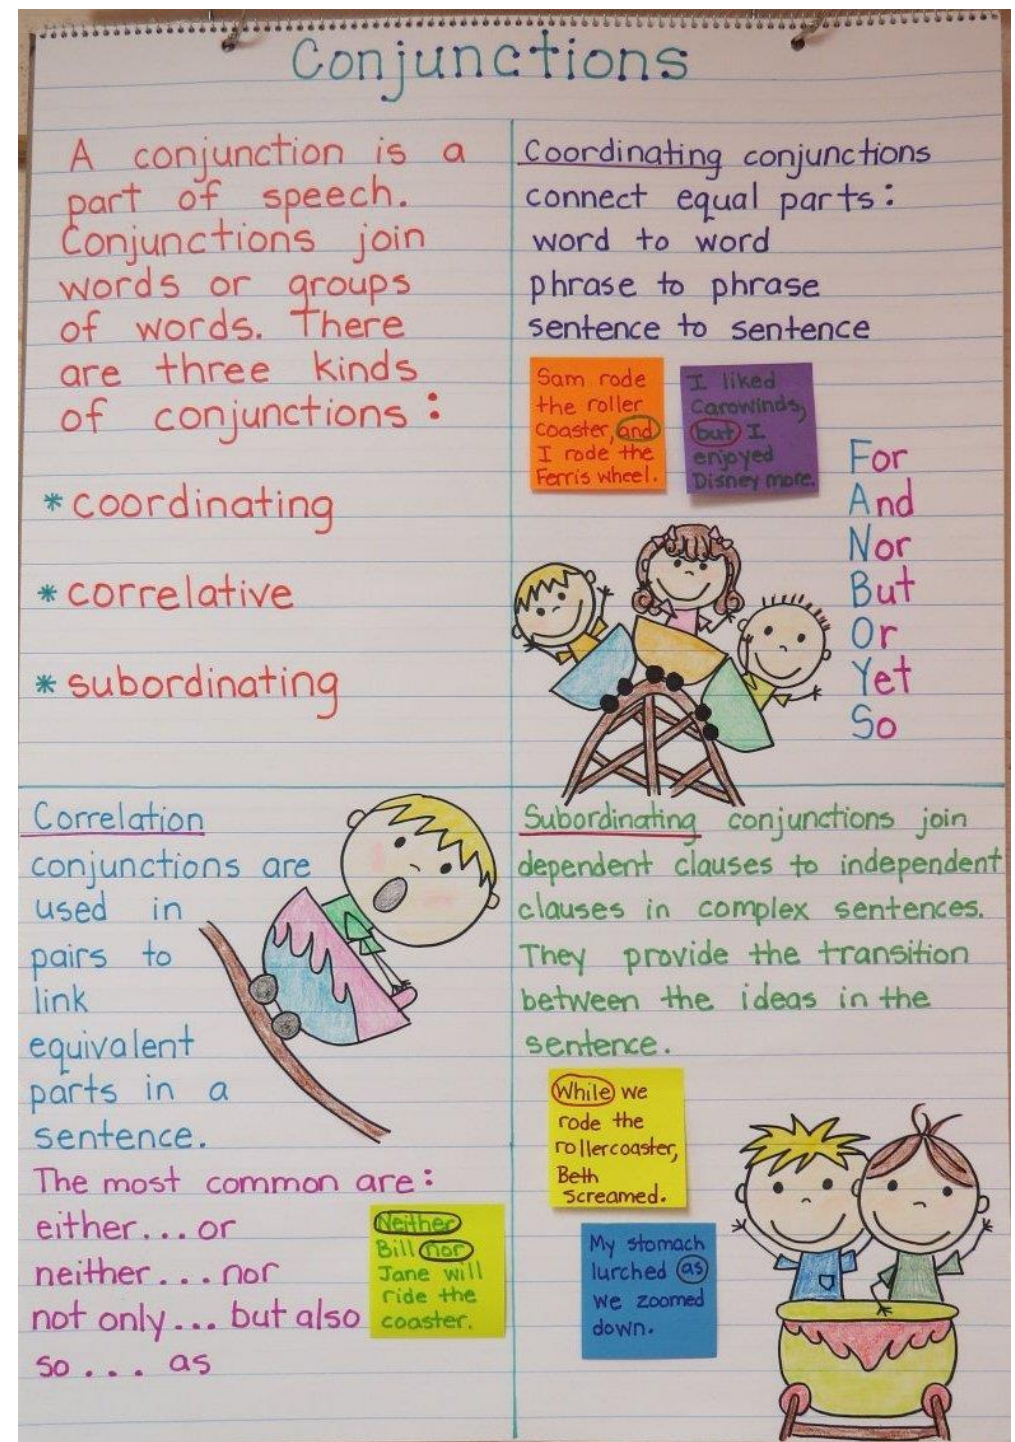 Conjunctions
A conjunction is a
part of speech.
Conjunctions join
words or groups
of words. There
are three kinds
of conjunctions:
* coordinating
* correlative
* subordinating
Coordinating conjunctions
connect equal parts:
word to word
phrase to phrase
sentence to sentence
Sam rode
the roller
coaster, and
I rode the
Ferris wheel.
I liked
Carowinds,
but I
enjoyed
Disney more.
For
And
Nor
But
Or
Yet
So
Correlation
conjunctions are
used in
pairs to
link
equivalent
parts in a
sentence.
The most common are:
either... or
neither... nor
not only... but also
so... as
Neither
Bill nor
Jane will
ride the
coaster.
Subordinating conjunctions join
dependent clauses to independent
clauses in complex sentences.
They provide the transition
between the ideas in the
sentence.
While we
rode the
rollercoaster,
Beth
screamed.
My stomach
lurched as
we zoomed
down.